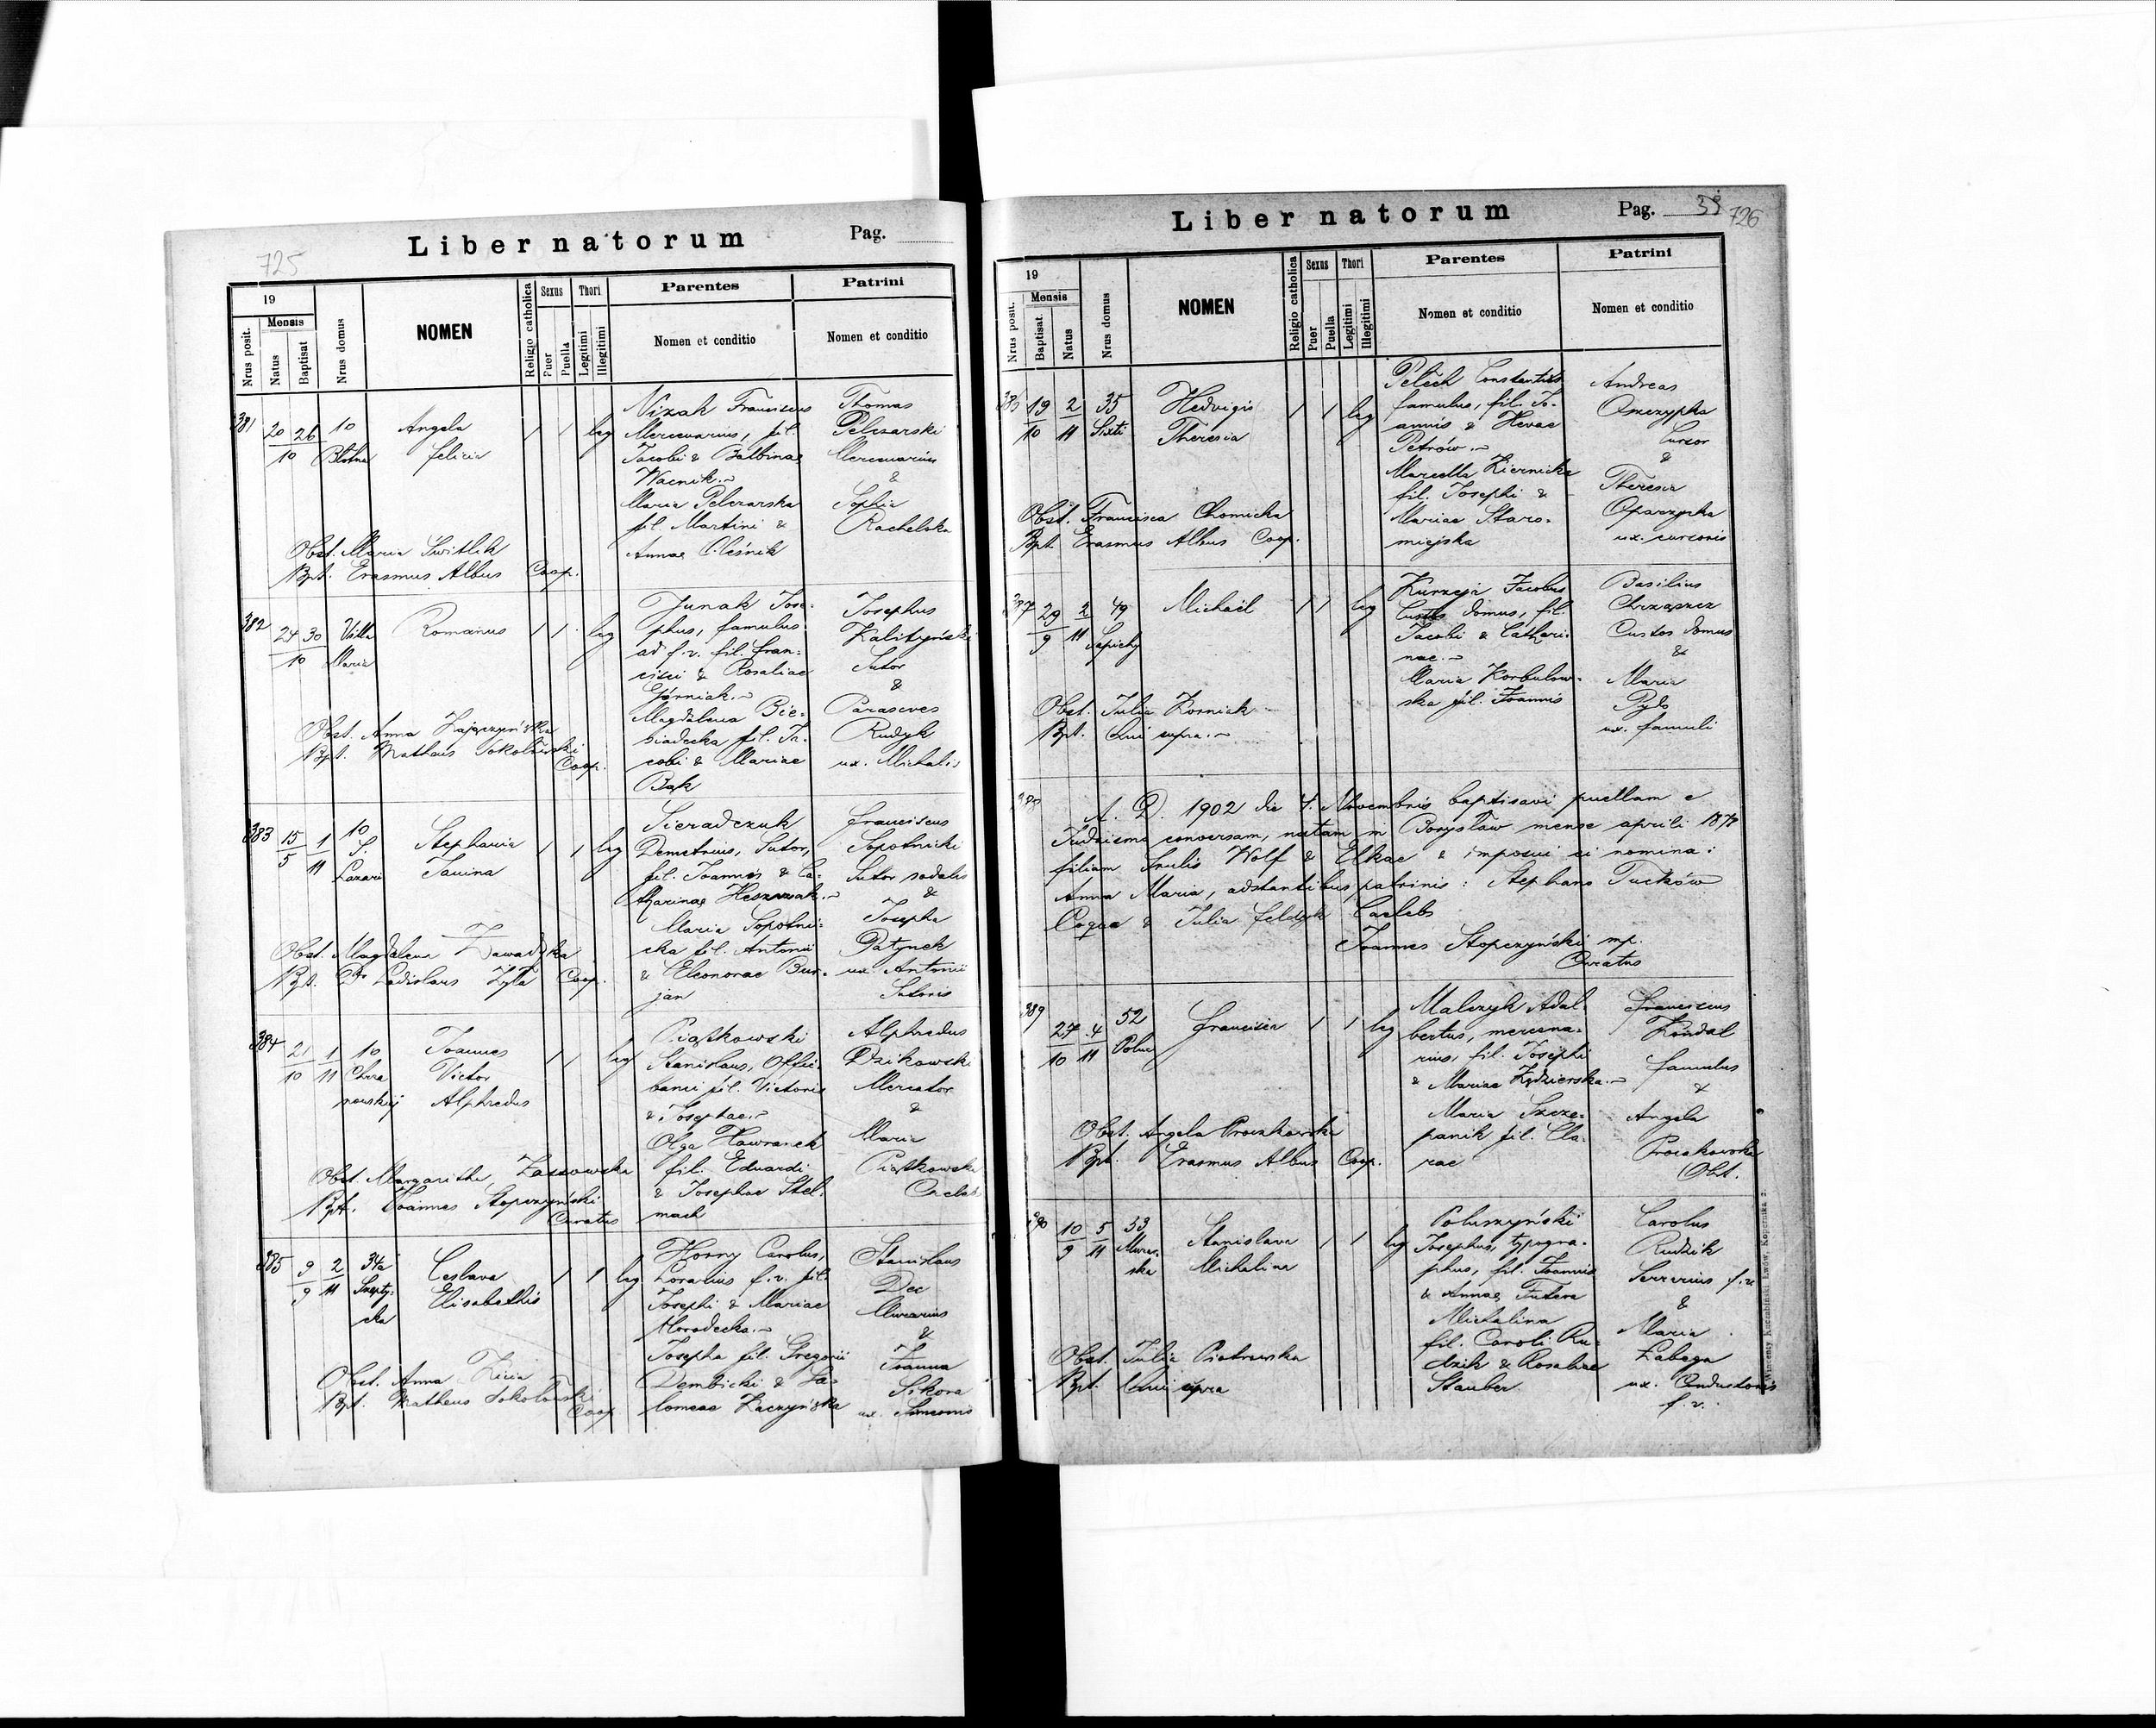 725
Liber natorum
Pag.
19
Mensis
Nrus posit.
Natus
Baptisat
Nrus domus
NOMEN
Religio catholica
Sexus
Puer
Puella
Thori
Legitimi
Illegitimi
Parentes
Nomen et conditio
Patrini
Nomen et conditio
381
20 26
10
10
Angela
Felicia
1 1 leg
Nizak Franciscus
Mercenarius, fil.
Jacobi & Balbinae
Wacnik.
Maria Pelczarska
fil. Martini &
Annae Oleśnik
Thomas
Pelczarski
Mercenarius
&
Sophia
Rachelska
Obst. Maria Switlik
Bpt. Erasmus Albus Coop.
382
24 30
10
Villa
Maria
Romanus
1 1 leg
Junak Jose-
phus, famulus
ad f. v. fil. Fran-
cisci & Rosaliae
Górniak.
Magdalena Bie-
siadecka fil. Ja-
cobi & Mariae
Bąk
Josephus
Kalityński
Sutor
&
Parasceves
Rudyk
ux. Michalis
Obst. Anna Zajączyńska
Bpt. Matheus Sokołowski
Coop.
383
15 1
5 11
10
S.
Lazari
Stephania
Janina
1 1 leg
Sieradczuk
Demetrius, Sutor,
fil. Joannis & Ca-
tharinae
Maria Sopotni-
cka fil. Antonii
& Eleonorae Bur-
jan
Franciscus
Sopotnicki
Sutor sodalis
&
Josepha
Patynek
ux. Antonii
Sutoris
Obst. Magdalena Zawadzka
Bpt. Dr Ladislaus Żyła Coop.
384
21 1
10 11
10
Joannes
Victor
Alphredus
1 1 leg
Piątkowski
Stanislaus, Offic.
fil. Victoris
& Josephae.
Olga Hawranek
fil. Eduardi
& Josephae Stel-
mach
Alphredus
Dzikowski
Mercator
&
Maria
Piątkowska
Obst. Margaritha
Bpt. Joannes Stopczyński
Curatus
385
9 2
9 11
34a
Szepty-
cka
Ceslava
Elisabethis
1 1 leg
Horny Carolus,
f. v. fil.
Josephi & Mariae
Horodecka.
Josepha fil. Gregorii
Dembicki & Sa-
lomeae Kaczyńska
Stanislaus
Dec
Murarius
&
Joanna
Sikora
ux. Simeonis
Obst. Anna Zicia
Bpt. Matheus Sokołowski
Coop.
Liber natorum
Pag. 39 726
19
Mensis
Nrus posit.
Baptisat
Natus
Nrus domus
NOMEN
Religio catholica
Sexus
Puer
Puella
Thori
Legitimi
Illegitimi
Parentes
Nomen et conditio
Patrini
Nomen et conditio
386
19 2
10 11
35
Sixti
Hedvigis
Theresia
1 1 leg
Pelech Constantinus
famulus, fil. Jo-
annis & Hevae
Petrów.
Marcella Kiernicka
fil. Josephi &
Mariae Staro-
miejska
Andreas
Cursor
&
Theresia
ux. cursoris
Obst. Francisca Chomicka
Bpt. Erasmus Albus Coop.
387
29 2
9 11
49
Sapiehy
Michaël
1 1 leg
Kurzeja Jacobus
Custos domus, fil.
Jacobi & Cathari-
nae.
Maria Korbulow-
ska fil. Joannis
Basilius
Chrząszcz
Custos domus
&
Maria
Pydo
ux. famuli
Obst. Julia Korniak
Bpt. Qui supra.
388
A. D. 1902 die 4. Novembris baptisavi puellam e
Judaismo conversam, natam in Borysław mense aprili 1878
filiam Srulis Wolf & Elkae & imposui ei nomina:
Anna Maria, adstantibus patrinis: Stephano Tucków
Coqua & Julia Feldzyk Caelebs
Joannes Stopczyński mp.
Curatus
389
27 4
10 11
52
Francisca
1 1 leg
Malczyk Adal-
bertus, mercena-
rius, fil. Josephi
& Mariae Kędzierska.
Maria Szcze-
panik fil. Cla-
rae
Franciscus
Kindal
famulus
&
Angela
Prociakowska
Obst.
Obst. Angela Prociakowska
Bpt. Erasmus Albus Coop.
390
10 5
9 11
53
Murar-
ska
Stanislava
Michalina
1 1 leg
Poluszyński
Josephus, typogra-
phus, fil. Joannis
& Annae Futera
Michalina
fil. Caroli Ru-
dzik & Rosaliae
Stauber
Carolus
Rudzik
Serrarius f. v.
&
Maria
Łabaga
ux. Conductoris
f. v.
Obst. Julia Piotrowska
Bpt. Qui supra
Wincenty Kuczabiński Lwów, Kopernika 2.